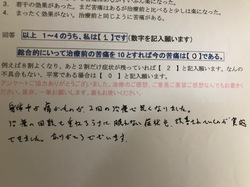 3. 若干の効果が、まだ苦痛はあるが治療前と比べると少しは楽になった。
4. まったく効果がない、治療前と同じように苦痛がある。
回答　以上 1～4のうち、私は【 1 】です (数字を記入願います)
総合的にいって治療前の苦痛を10とすれば今の苦痛は【 0 】である。
例えば8割よくなり、あと2割だけ症状が残っていれば【 2 】と記入願います。なんの
不具合もない、平常である場合は【 0 】と記入願います。
身体中が痛かったのが、2回の治療で良くなりました。
治療の回数を重ねるうちに眠れない症状も
できました。ありがとうございます。